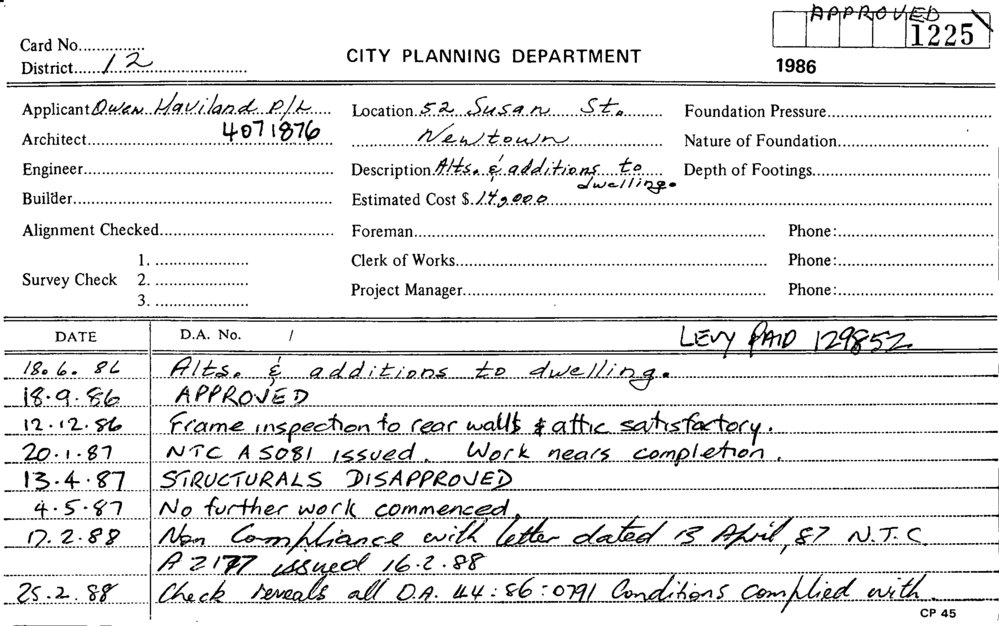 APPROVED
Card No...............
1225
District......12......................
CITY PLANNING DEPARTMENT
1986
Applicant Owen Haviland P/L
Location 52 Susan St.
Foundation Pressure
4071876
Architect
Newtown
Nature of Foundation
Engineer
Description Alts. & additions to dwelling.
Depth of Footings
Builder
Estimated Cost $ 14,000
Alignment Checked
Foreman
Phone:
Survey Check 1.
2.
3.
Clerk of Works
Phone:
Project Manager
Phone:
DATE D.A. No. / LEVY PAID 129852
18.6.86 Alts. & additions to dwelling.
18.9.86 APPROVED
12.12.86 Frame inspection to rear walls & attic satisfactory.
20.1.87 NTC A5081 issued. Work nears completion.
13.4.87 STRUCTURALS DISAPPROVED
4.5.87 No further work commenced.
17.2.88 Non Compliance with letter dated 13 April, 87 N.T.C.
A 2177 issued 16.2.88
25.2.88 Check reveals all D.A. 44:86:0791 Conditions complied with.
CP 45